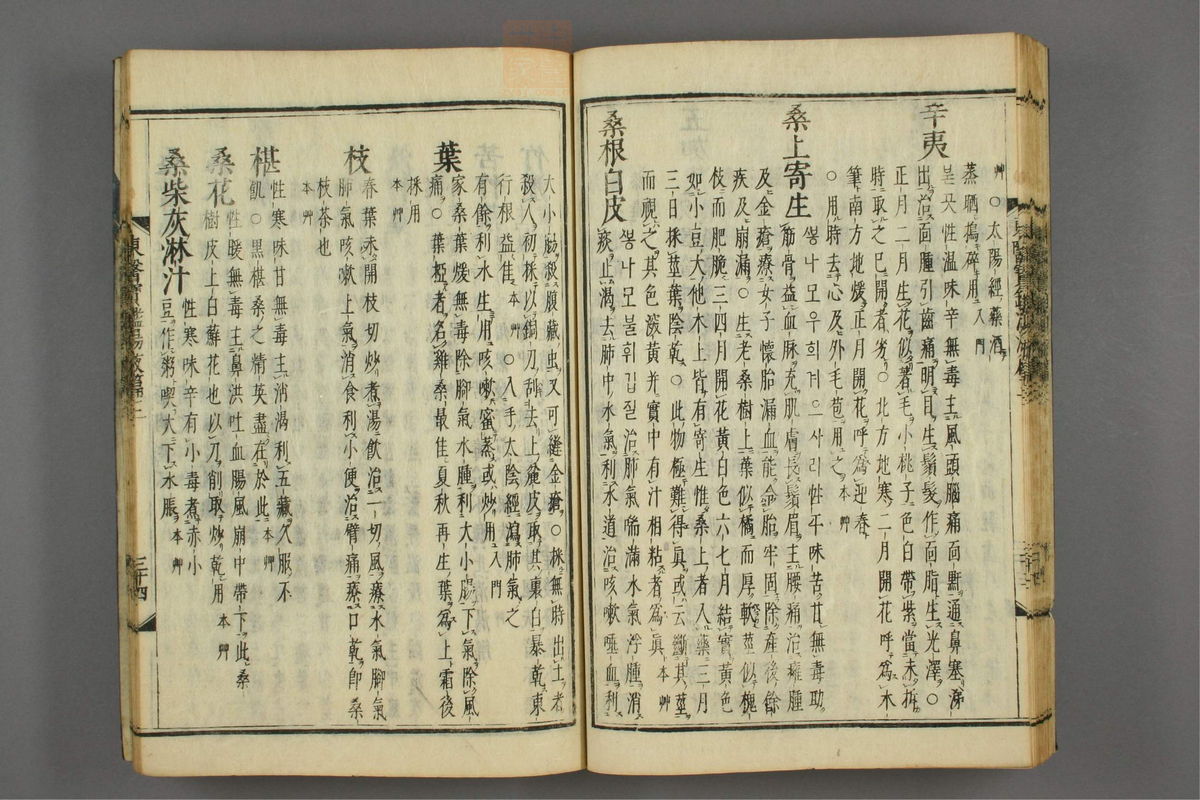 艸○太陽經藥酒
蒸晒搗碎用入門
辛夷
붇곳性溫味辛無毒主風頭腦痛面䵟通鼻塞涕
出治面腫引齒痛明目生鬚髮作面脂生光澤○
正月二月生花似著毛小桃子色白帶紫當未拆
時取之已開者劣○北方地寒二月開花呼爲木
筆南方地煖正月開花呼爲迎春
○用時去心及外毛苞用之本艸
桑上寄生
뽕나모우희겨으사리性平味苦甘無毒助
筋骨益血脉充肌膚長鬚眉主腰痛治癰腫
及金瘡療女子懷胎漏血能令胎牢固除産後餘
疾及崩漏○生老桑樹上葉似橘而厚軟莖似槐
枝而肥脆三四月開花黃白色六七月結實黃色
如小豆大他木上皆有寄生惟桑上者入藥三月
三日採莖葉陰乾○此物極難得眞或云斷其莖
而視之其色深黃并實中有汁相粘者爲眞本艸
桑根白皮
뽕나모불휘겁질治肺氣喘滿水氣浮腫消
痰止渴去肺中水氣利水道治咳嗽唾血利
大小腸殺腹藏虫又可縫金瘡○採無時出土者
殺人初採以銅刀刮去上麄皮取其裏白暴乾東
行根益佳本艸○入手太陰經瀉肺氣之
有餘利水生用咳嗽蜜蒸或炒用入門
葉
家桑葉煖無毒除脚氣水腫利大小腸下氣除風
痛○葉椏者名雞桑最佳夏秋再生葉爲上霜後
採用
本艸
枝
春葉未開枝切炒煮湯飮治一切風療水氣脚氣
肺氣咳嗽上氣消食利小便治臂痛療口乾卽桑
枝茶也
本艸
椹
性寒味甘無毒主消渴利五藏久服不
飢○黑椹桑之精英盡在於此本艸
桑花
性暖無毒主鼻洪吐血腸風崩中帶下此桑
樹皮上白蘚花也以刀削取炒乾用本艸
桑柴灰淋汁
性寒味辛有小毒煮赤小
豆作粥喫大下水脹本艸
東醫寶鑑湯液篇三
三十四